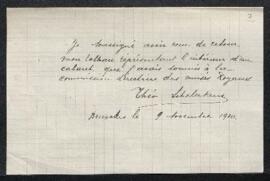 Je soussigné avoir reçu de retour
mon tableau représentant l'intérieur d'un
cabaret, que j'avais soumis à la
commission directrice des musées Royaux
Théo
Bruxelles le 9 novembre